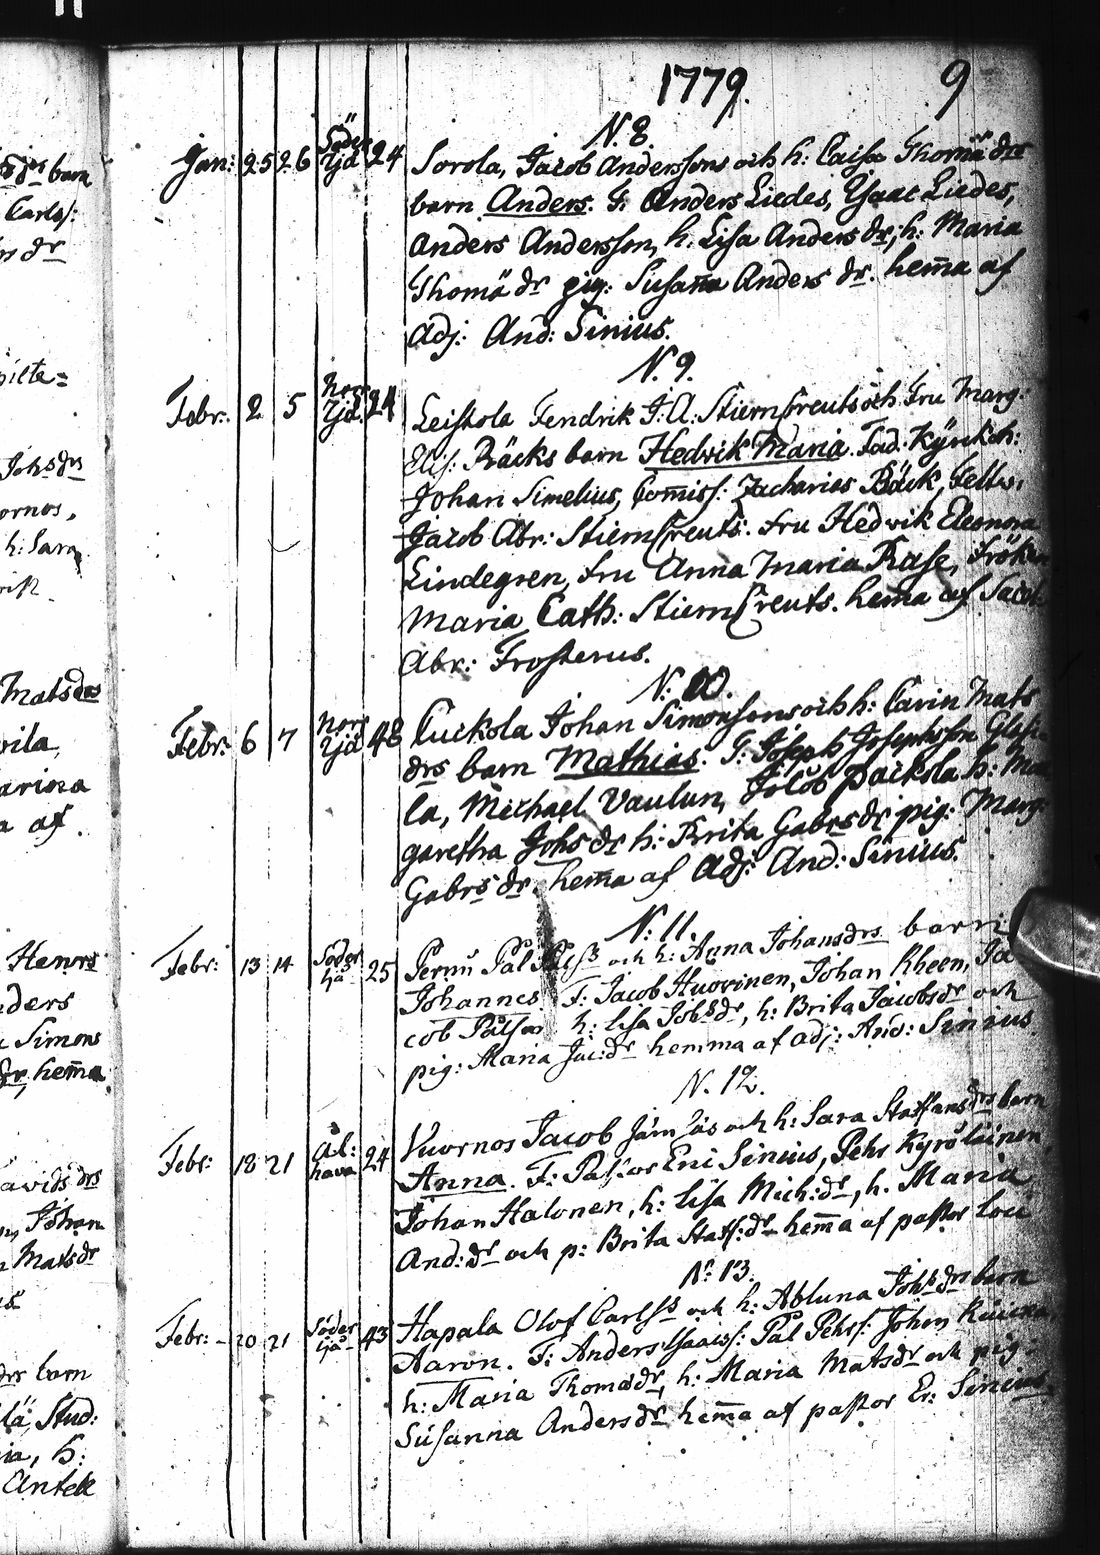 1779. 9
N. 8.
Jan: 25 26 Söder Yjä 24 Sorola, Jacob Anderssons och h: Caisa Thomä drs
barn Anders. F: Anders Liedes, Ysaac Liedes,
Anders Andersson, h. Lisa Anders dr, h: Maria
Thomä dr pig: Susana Anders dr. hem̄a af
Adj: And: Sinius.
N. 9.
Febr: 2 5 Norr Yjä 24 Leistola Fendrik J: A: StiernCreuts och Fru Marg:
Elis: Bäcks barn Hedvik Maria. Fad: Kÿrckh:
Johan Simelius, Com̄iss: Zacharias Bäck, Feltw:
Jacob Abr: StiernCreuts. Fru Hedvik Eleonora
Lindegren, Fru Anna Maria Rase, Frök
Maria Cath: StiernCreuts. hem̄a af Jacob
Abr: Frosterus.
N: 10.
Febr: 6 7 Norr Yjä 48 Cuckola Johan Simonsons och h: Carin Mats
drs barn Mathias. F: Joseph Josephson
la, Michael Vaulun, Jacob Packola h:
garetha Johs dr h: Brita Gabrs dr pig: Marg:
Gabrs dr. hem̄a af Adj: And: Sinius.
N: 11.
Febr: 13 14 Söder Yjä 25 Pernu Pål och h: Anna Johansdrs barn
Johannes F: Jacob Huovinen, Johan Kheen, Ja
cob Pålson h: Lisa Johsdr, h: Brita Jacobsdr och
pig: Maria Jac:dr hemma af adj: And: Sinius
N. 12.
Febr: 18 21 Al: hava 24 Vuornos Jacob och h: Sara Staffansdrs barn
Anna. F: Pastor Eric Sinius, Pehr Kyröläinen
Johan Halonen, h: Lisa Mich:dr, h. Maria
And:dr och p: Brita Staff:dr hem̄a af pastor Loci
N: 13.
Febr: 20 21 Söder Yjä 43 Hapala Olof Carlss och h: Abluna Johsdrs barn
Aaron. F: Anders Ysaacs: Pål Pehrs: Johan
h: Maria Thomadr, h: Maria Matsdr och pig:
Susanna Andersdr hem̄a af pastor Er: Sinius.
barn
Carls:
Johsdrs
h: Sara
Matsdrs
arina
a af.
Simons
hem̄a
avidsdrs
Johan
Matsdr
drs barn
Stud:
ia, h:
Antell